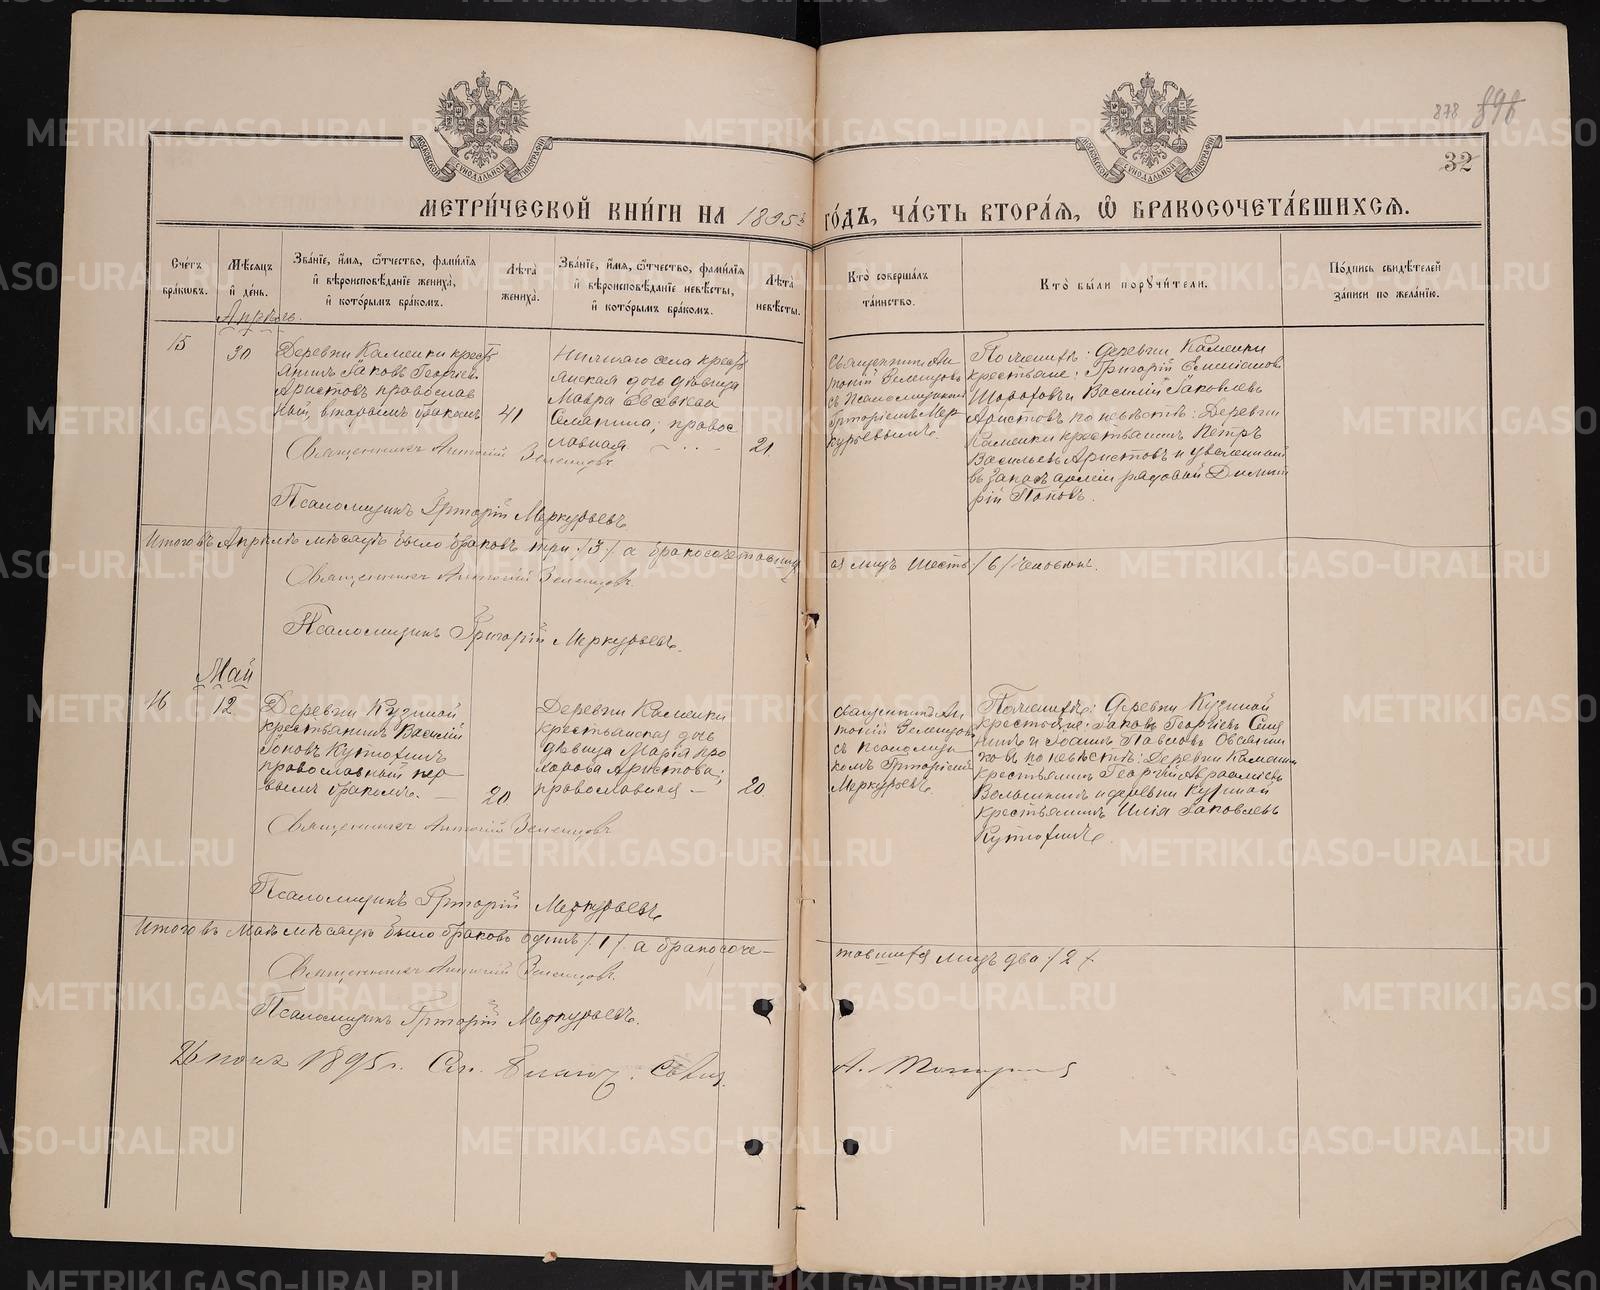 878 898
32
МОСКОВСКОЙ СѴНОДАЛЬНОЙ ТИПОГРАФІИ
МОСКОВСКОЙ СѴНОДАЛЬНОЙ ТИПОГРАФІИ
МЕТРИ́ЧЕСКОЙ КНИ́ГИ НА 1895й ГО́ДЪ, ЧА́СТЬ ВТОРА́Я, Ѿ БРАКОСОЧЕТА́ВШИХСЯ.
Сче́тъ бра́кѡвъ.
Мѣ́сяцъ и҆ де́нь.
Зва́нїе, и҆́мя, ѻ҆́тчество, фами́лїя и҆ вѣроисповѣ́данїе жениха̀, и҆ кото́рымъ бра́комъ.
Лѣ́та жениха̀.
Зва́нїе, и҆́мя, ѻ҆́тчество, фами́лїя и҆ вѣроисповѣ́данїе невѣ́сты, и҆ кото́рымъ бра́комъ.
Лѣ́та невѣ́сты.
Кто̀ соверша́лъ та́инство.
Кто̀ бы́ли порꙋчи́тели.
По́дпись свидѣ́телей за́писи по жела́нїю.
Апрѣль.
15
30
Деревни Каменки крестъ
янинъ Іаковъ Георгіевъ
Аристовъ православ
ный, вторымъ бракомъ
41
Нижняго села крестъ
янская дочь дѣвица
Мавра Евсѣева
Семянина; правос
лавная
21
Священникъ Ан
тоній Зеленцовъ
съ Псаломщикомъ
Григоріемъ Мер
курьевымъ.
По женихѣ: Деревни Каменки
крестьяне: Григорій Емиліановъ
и Василій Іаковлевъ
Аристовъ по невѣстѣ: Деревни
Каменки крестьянинъ Петръ
Васильевъ Аристовъ и уволенный
въ запасъ арміи рядовой Димит
рій Поповъ.
Священникъ Антоній Зеленцовъ
Псаломщикъ Григорій Меркурьевъ
Итого въ Апрѣлѣ мѣсяцѣ было браковъ три /3/ а бракосочетавших
ся лицъ шесть /6/ человѣкъ.
Священникъ Антоній Зеленцовъ.
Псаломщикъ Григорій Меркурьевъ.
Май
16
12
Деревни Кузиной
крестьянинъ Василій
Іоновъ Кутюхинъ
православный пер
вымъ бракомъ.
20
Деревни Каменки
крестьянская дочь
дѣвица Марія Про
хорова Аристова;
православная
20
Священникъ Ан
тоній Зеленцовъ
съ псаломщи
комъ Григоріемъ
Меркурьевъ.
По женихѣ: Деревни Кузиной
крестьяне: Іаковъ Георгіевъ Семя
нинъ и Іоаннъ Павловъ Овсянни
ковъ по невѣстѣ: Деревни Каменки
крестьянинъ Георгій Авраамиевъ
и деревни Кузиной
крестьянинъ Илія Іаковлевъ
Кутюхинъ.
Священникъ Антоній Зеленцовъ
Псаломщикъ Григорій Меркурьевъ
Итого въ Маѣ мѣсяцѣ было браковъ одинъ /1/ а бракосоче-
тавшихся лицъ два /2/.
Священникъ Антоній Зеленцовъ.
Псаломщикъ Григорій Меркурьевъ.
1895 г.
METRIKI.GASO-URAL.RU